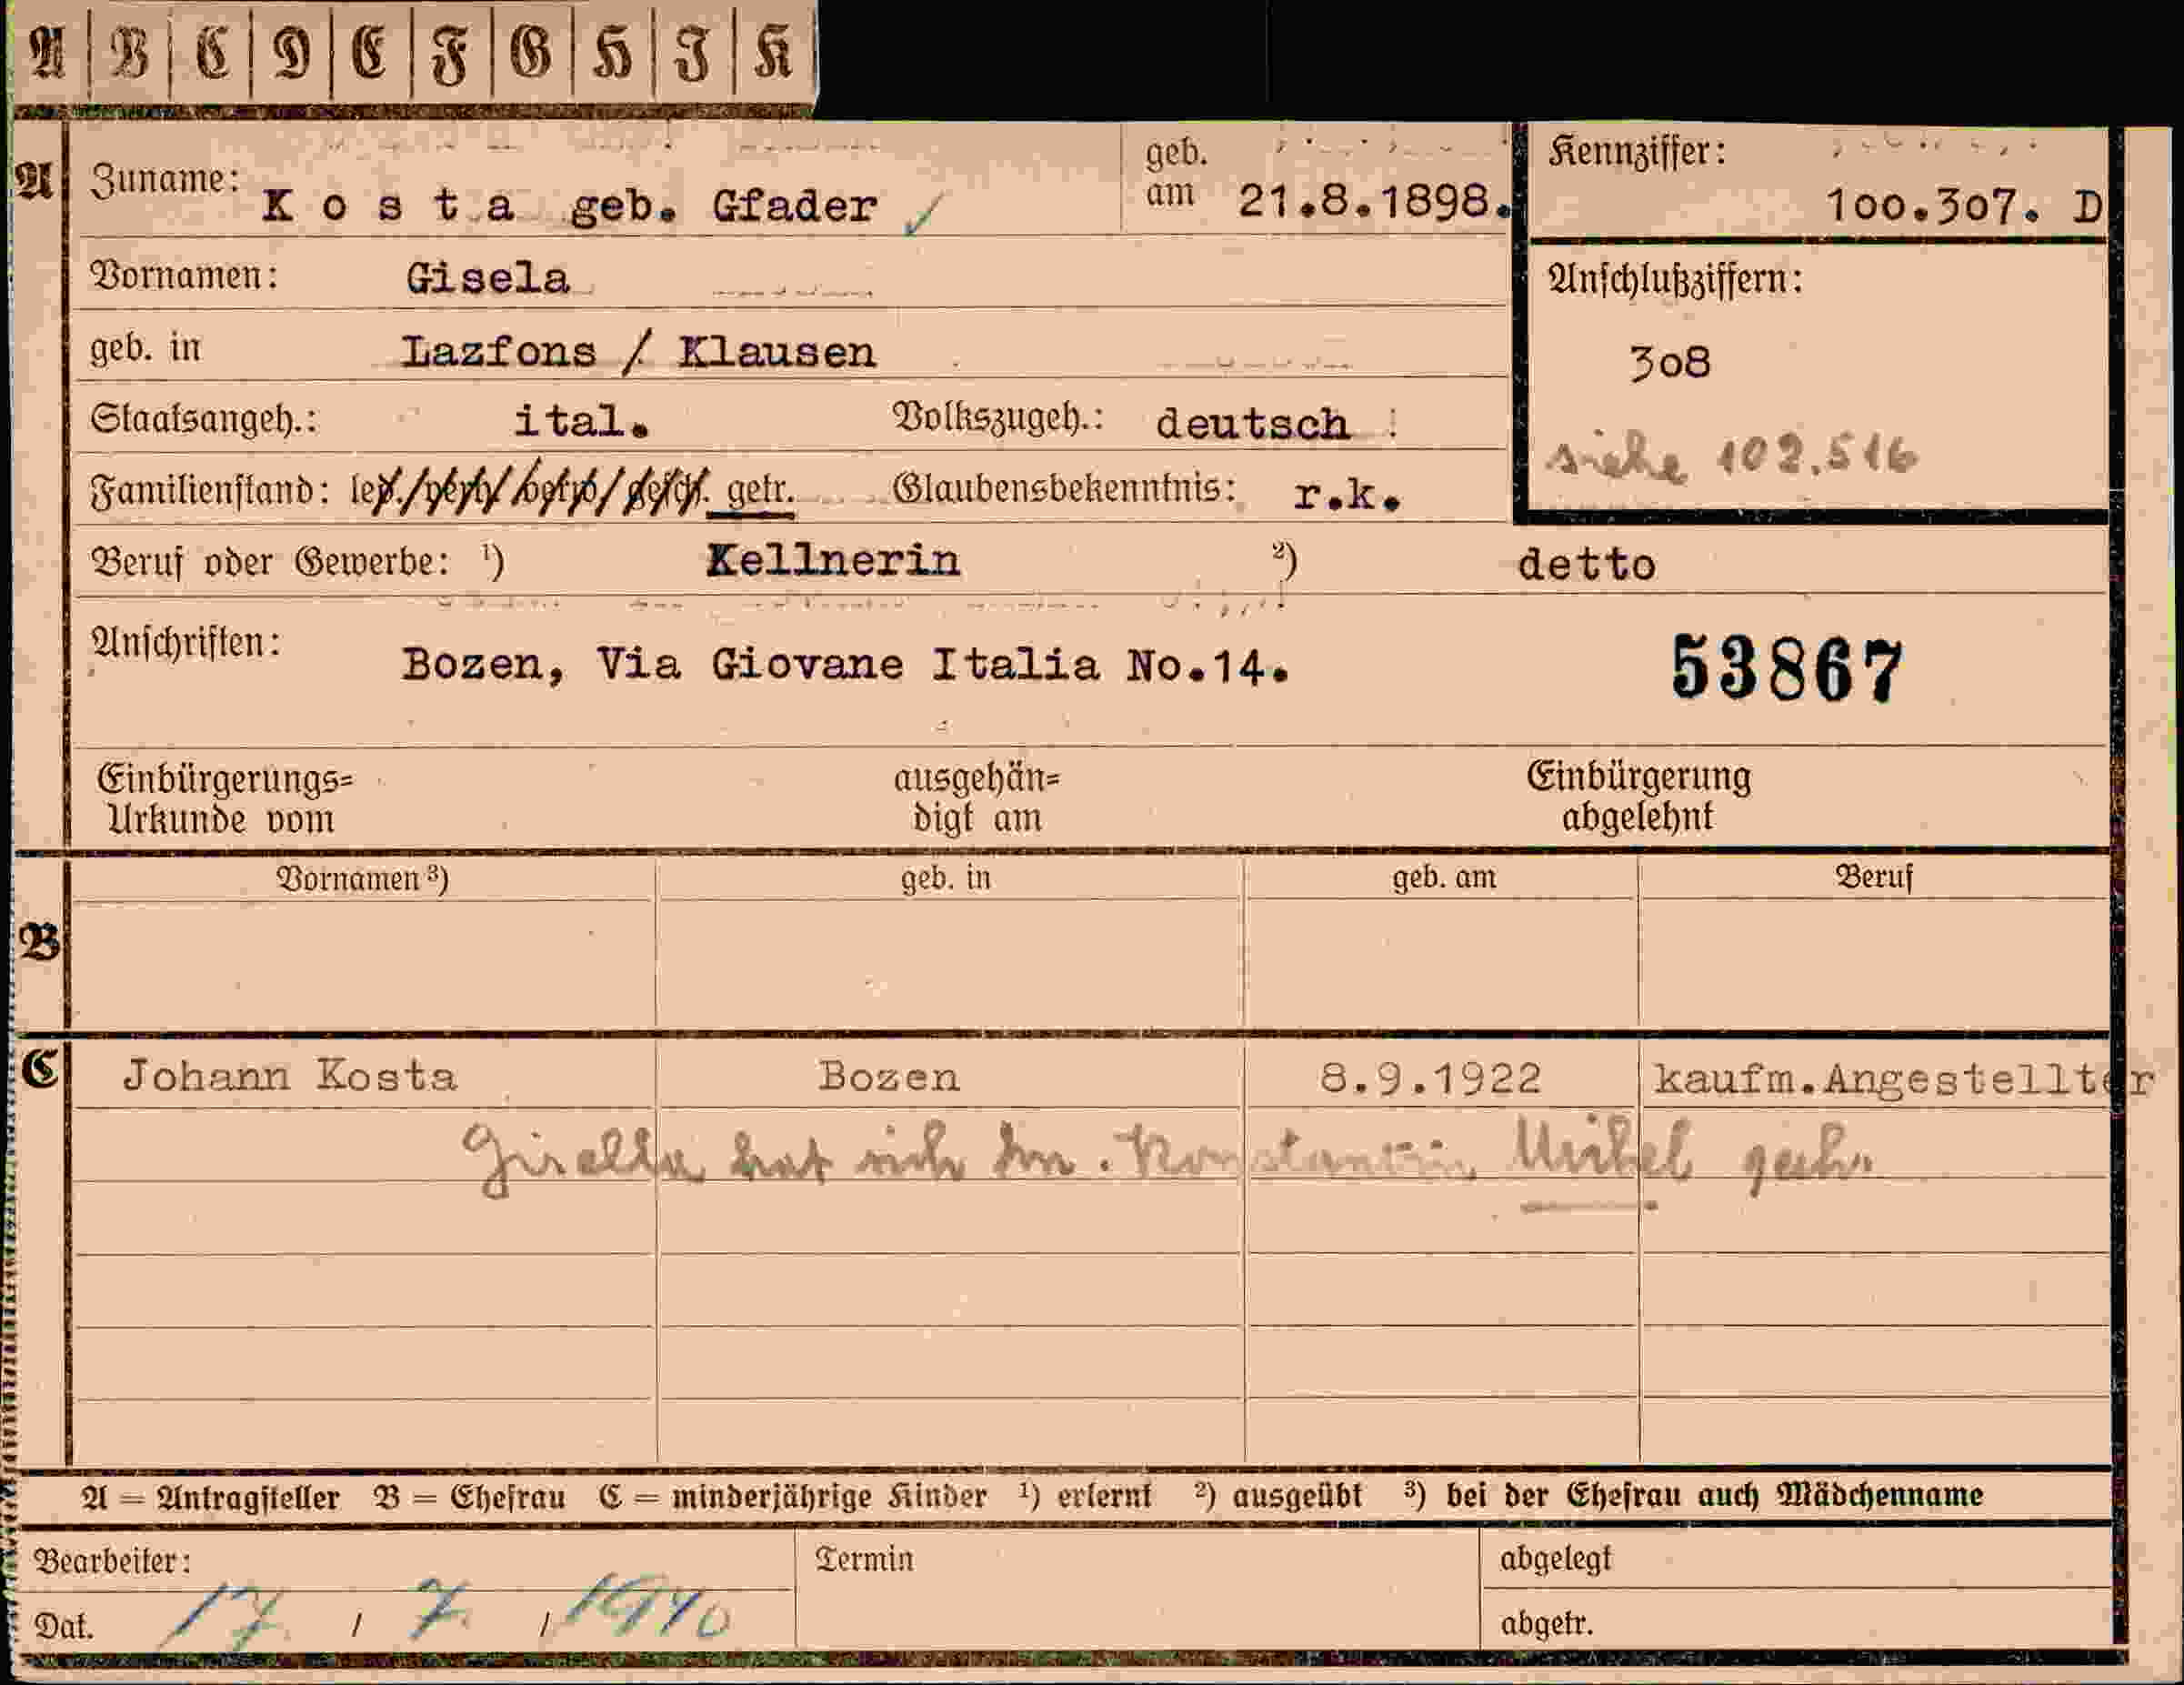 A B C D E F G H I K
A Zuname: Kosta geb. Gfader ✓ geb. am 21.8.1898. Kennziffer: 100.307. D
Vornamen: Gisela Anschlußziffern:
geb. in Lazfons / Klausen 308
Staatsangeh.: ital. Volkszugeh.: deutsch siehe 102.516
Familienstand: led./verh/verw/gesch. getr. Glaubensbekenntnis: r.k.
Beruf oder Gewerbe: ¹) Kellnerin ²) detto
Anschriften: Bozen, Via Giovane Italia No.14. 53867
Einbürgerungs= ausgehän= Einbürgerung
Urkunde vom digt am abgelehnt
Vornamen ³) geb. in geb. am Beruf
B
C Johann Kosta Bozen 8.9.1922 kaufm.Angestellter
hat sich Konstantin
A = Antragsteller B = Ehefrau C = minderjährige Kinder ¹) erlernt ²) ausgeübt ³) bei der Ehefrau auch Mädchenname
Bearbeiter: Termin abgelegt
Dat. 17 / 7 / 1940 abgetr.